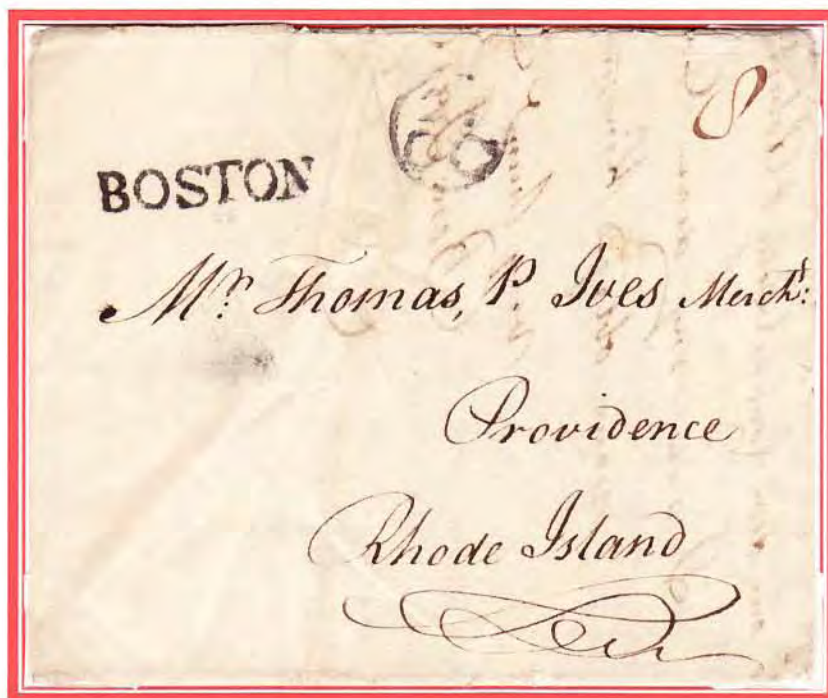 8
BOSTON
Mr. Thomas, P. Ives Mercht:
Providence
Rhode Island